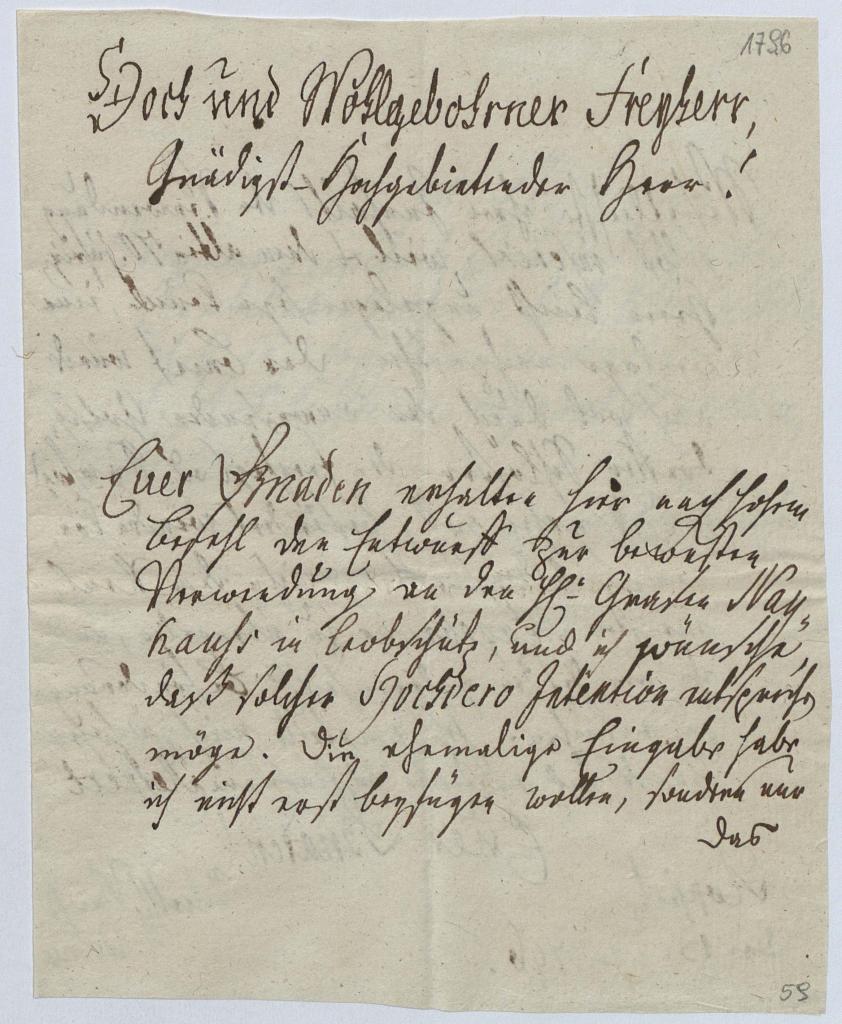 1796
Hoch und Wohlgebohrner Freyherr,
Gnädigst-Hochgebietender Herr!
Euer Gnaden erhalten hier nach hohem
Befehl den Entwurff zur bewusten
Verwendung an den H: Grafen Nay„
hauß in Leobschütz, und ich wünsche,
daß solcher Hochdero Intention entsprechen
möge. Die ehemalige Eingabe habe
ich nicht erst beyfügen wollen, sondern nur
das
59